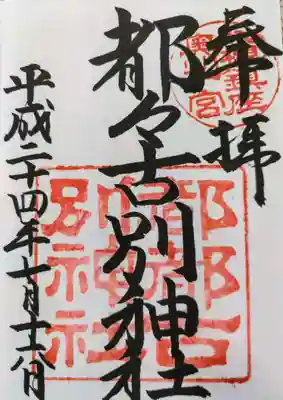 奉拝
都々古別神社
平成二十四年七月
都都古
別神社